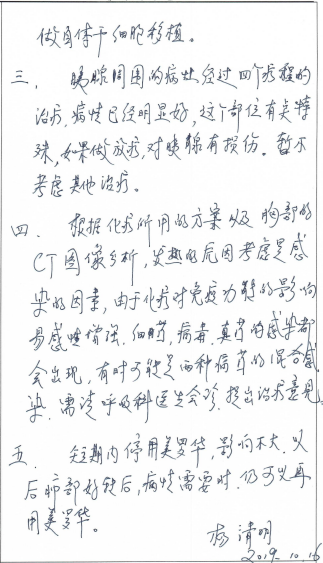 做自体干细胞移植。
三、胰腺周围的病灶经过四个疗程的
治疗,病情已经明显好,这个部位有点特
殊,如果做放疗,对胰腺有损伤。暂不
考虑其他治疗。
四、根据化疗所用的方案以及胸部的
CT图像分析,发热的原因考虑是感
染的因素,由于化疗对免疫力的影响
易感性增强,细菌,病毒,真菌的感染都
会出现,有时可能是两种病菌的混合感
染。需请呼吸科医生会诊,提出治疗意见。
五、短期内停用美罗华,影响不大,以
后肺部好转后,病情需要时,仍可以再
用美罗华。
清明
2019.10.16